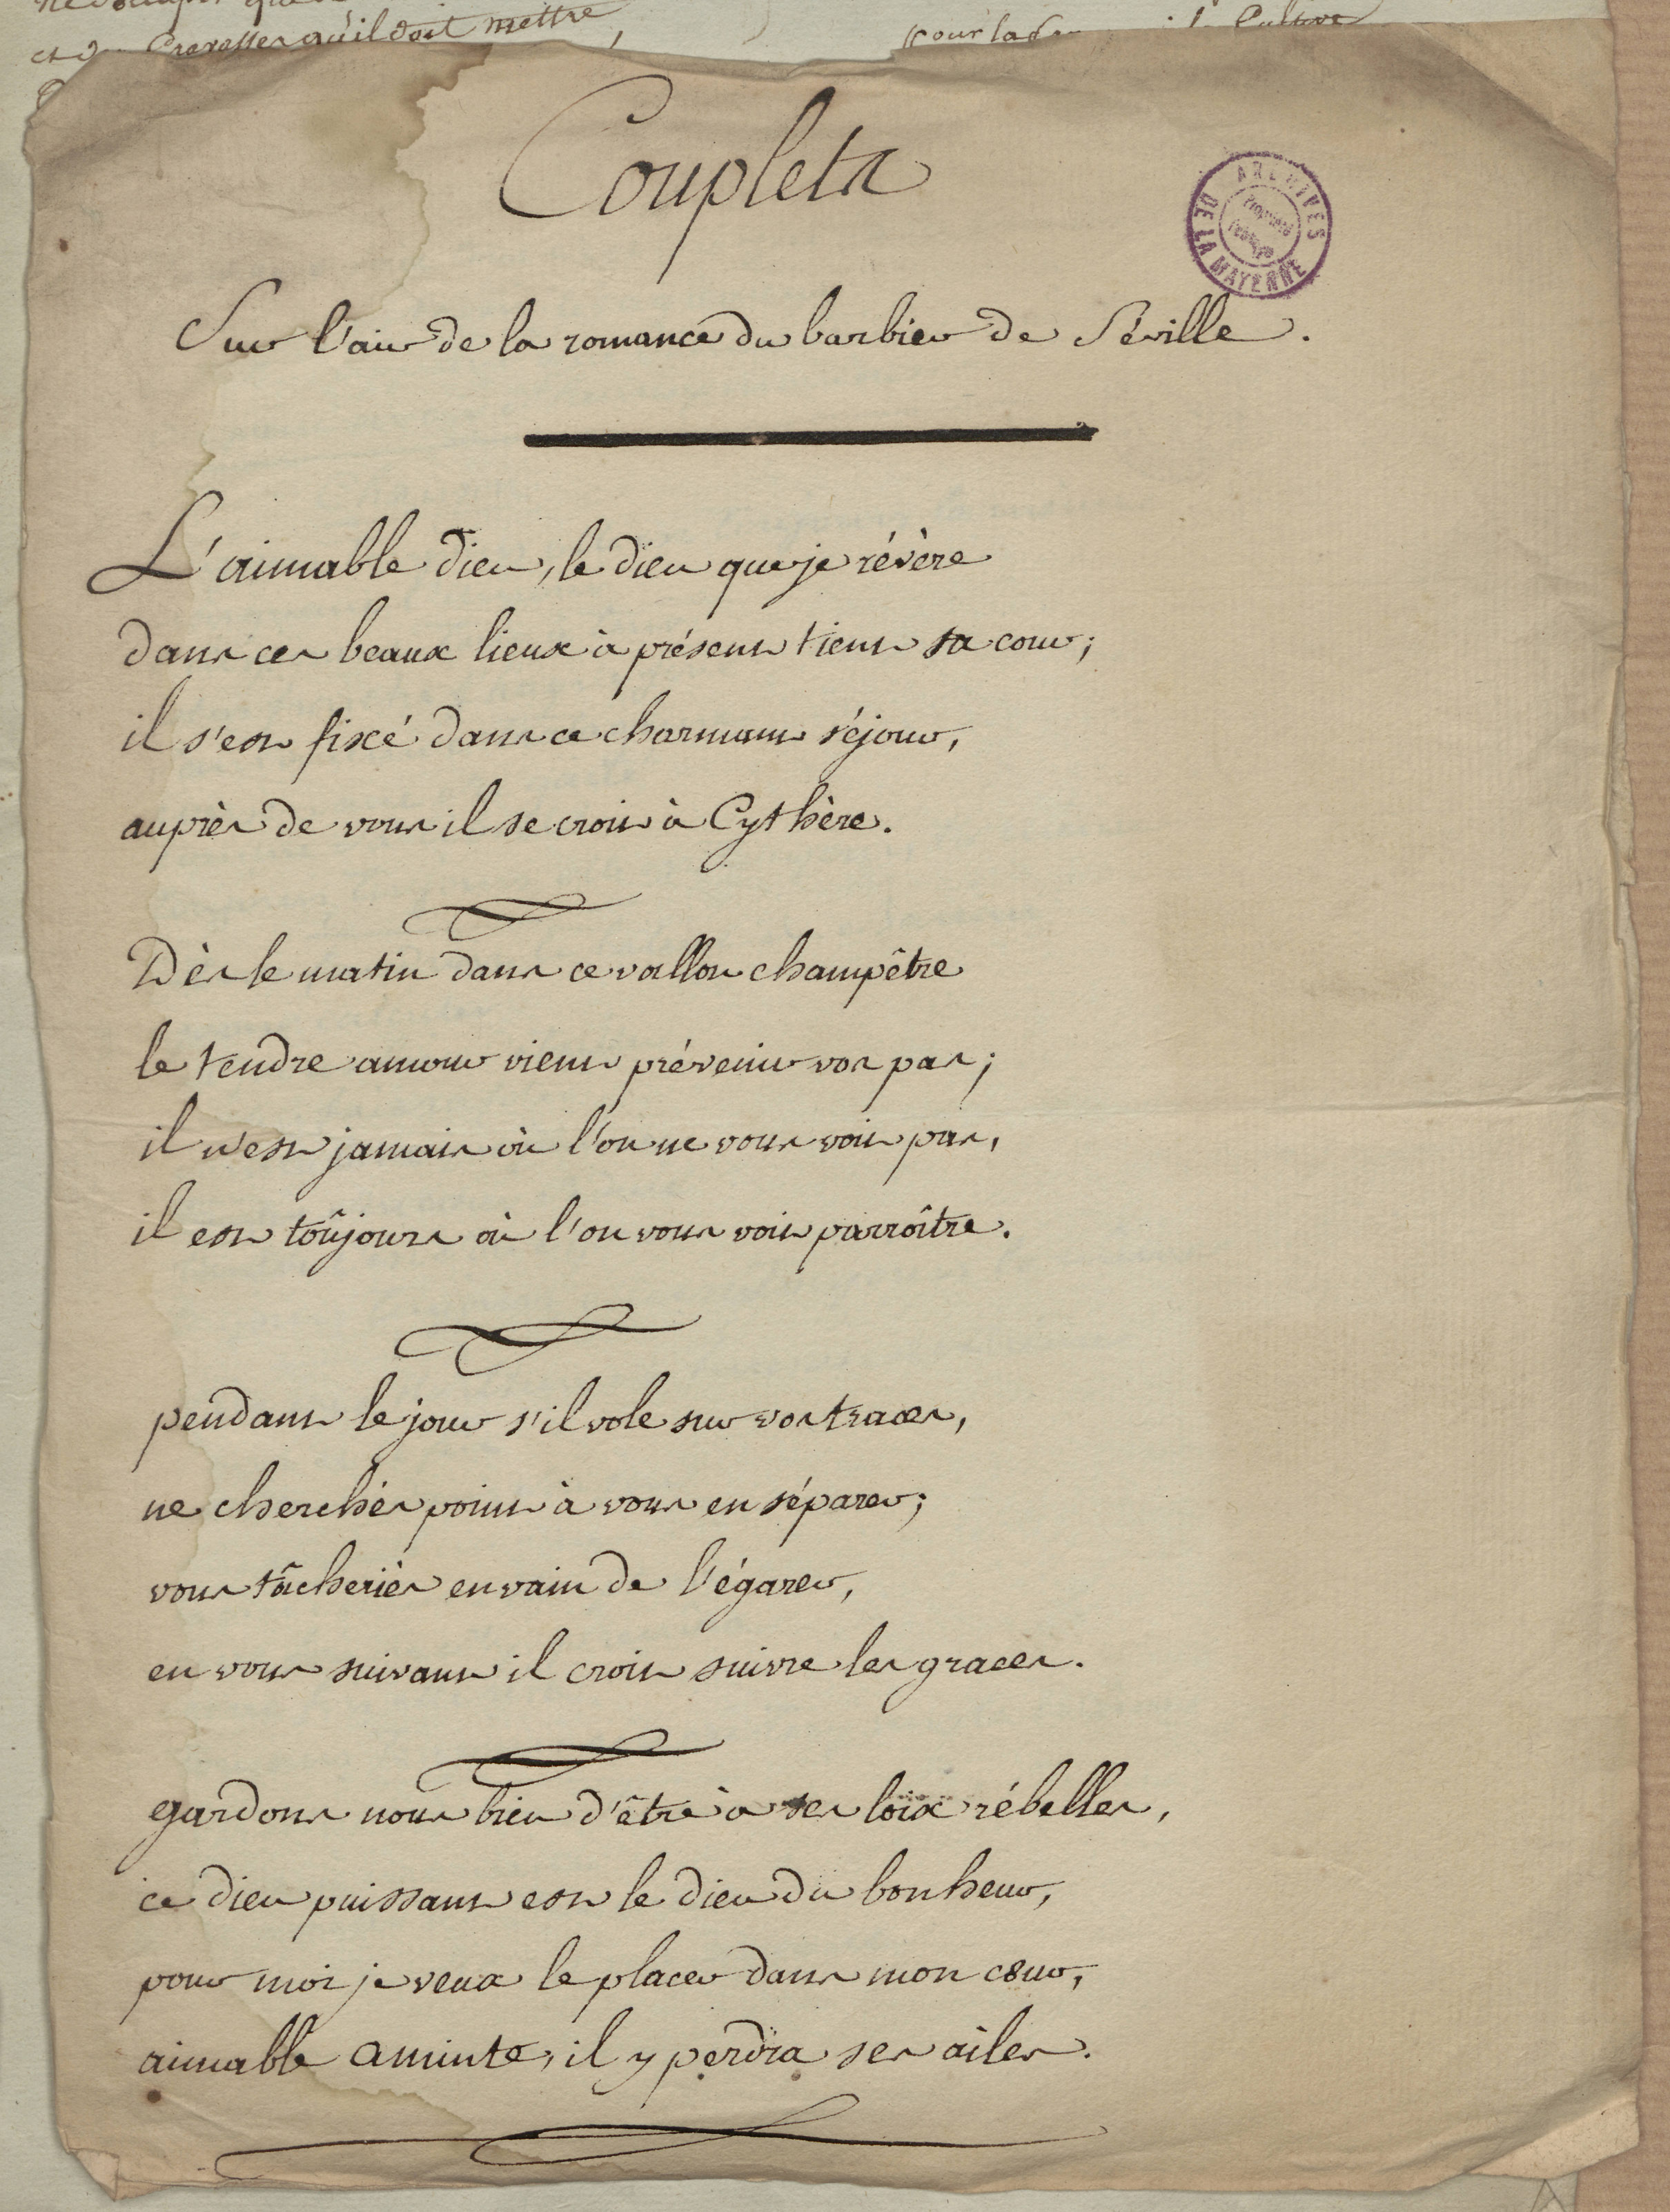 et d crevasses qu'il doit mettre,
Couplets
ARCHIVES
DE LA MAYENNE
Sur l'air de la romance du barbier de Séville.
L'aimable dieu, le dieu que je révère
dans ces beaux lieux à présent tient sa cour;
il s'est fixé dans ce charmant séjour,
auprès de vous il se croit à Cythère.
Dès le matin dans ce vallon champêtre
le tendre amour vient prévenir vos pas;
il n'est jamais où l'on ne vous voit pas,
il est toûjours où l'on vous voit parroître.
pendant le jour s'il vole sur vos traces,
ne cherchés point à vous en séparer;
vous tâcheriés en vain de l'égarer,
en vous suivant il croit suivre les graces.
gardons nous bien d'être à ses loix rébelles,
ce dieu puissant est le dieu du bonheur,
pour moi je veux le placer dans mon cœur,
aimable aminte, il y perdra ses ailes.